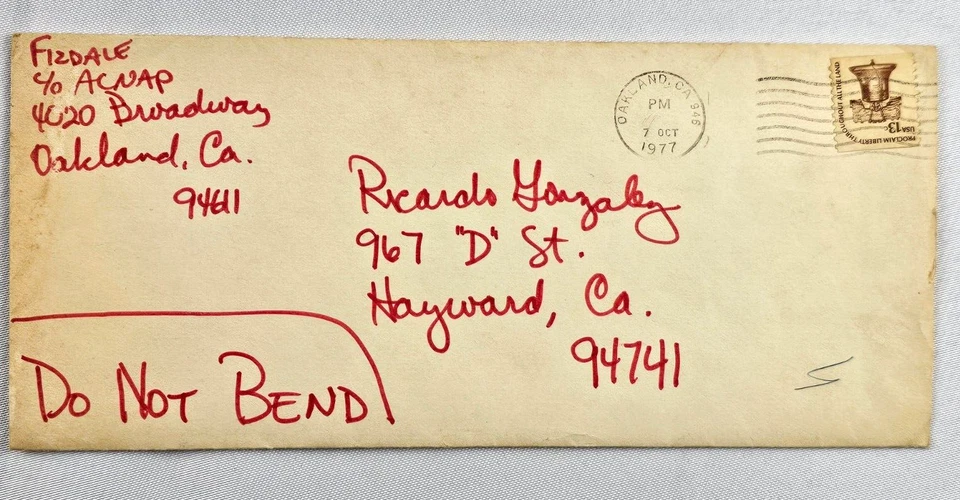 FIZDALE
c/o ACNAP
4020 Broadway
Oakland, Ca.
94611
OAKLAND, CA 946
PM
7 OCT
1977
PROCLAIM LIBERTY THROUGHOUT ALL THE LAND
USA 13c
Ricardo Gonzalez
967 "D" St.
Hayward, Ca.
94741
DO NOT BEND
5